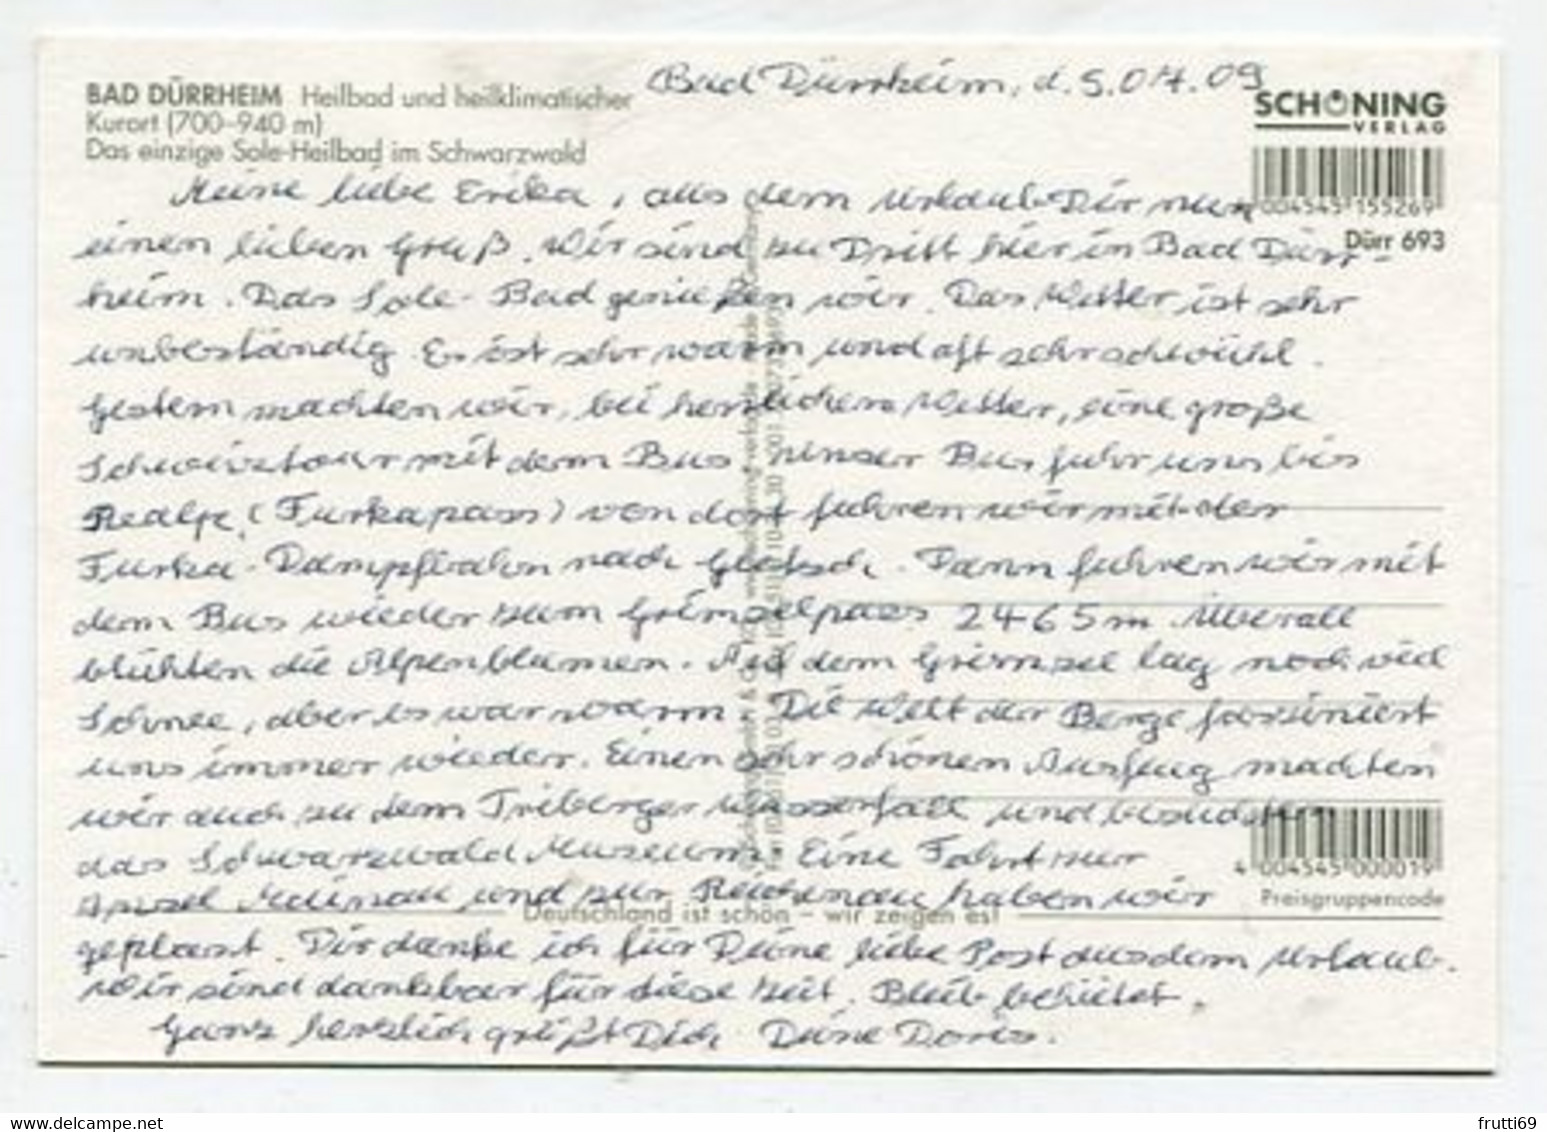 BAD DÜRRHEIM Heilbad und heilklimatischer
Kurort (700–940 m)
Das einzige Sole-Heilbad im Schwarzwald
Bad Dürrheim, d. 5.07.09
SCHÖNING
VERLAG
4 004545 155269
Dürr 693
Meine liebe Erika, aus dem Urlaub Dir nun
einen lieben Gruß. Wir sind zu Dritt hier in Bad Dürr-
heim. Das Sole-Bad genießen wir. Das Wetter ist sehr
unbeständig. Es ist sehr warm und oft sehr schwühl.
Gestern machten wir, bei herrlichem Wetter, eine große
Schweiztour mit dem Bus. Unser Bus fuhr uns bis
Realp, (Furkapass) von dort fuhren wir mit der
Furka-Dampfbahn nach Gletsch. Dann fuhren wir mit
dem Bus wieder zum Grimselpass 2465m. Überall
blühten die Alpenblumen. Auf dem Grimsel lag noch viel
Schnee, aber es war warm. Die Welt der Berge fasziniert
uns immer wieder. Einen sehr schönen Ausflug machten
wir auch zu dem Triberger Wasserfall und besuchten
das Schwarzwald Museum. Eine Fahrt zur
Insel Mainau und zur Reichenau haben wir
geplant. Dir danke ich für Deine liebe Post aus dem Urlaub.
Wir sind dankbar für diese Zeit. Bleib behütet.
Ganz herzlich grüßt Dich Deine Doris.
4 004545 000019
Preisgruppencode
Deutschland ist schön – wir zeigen es!
frutti69